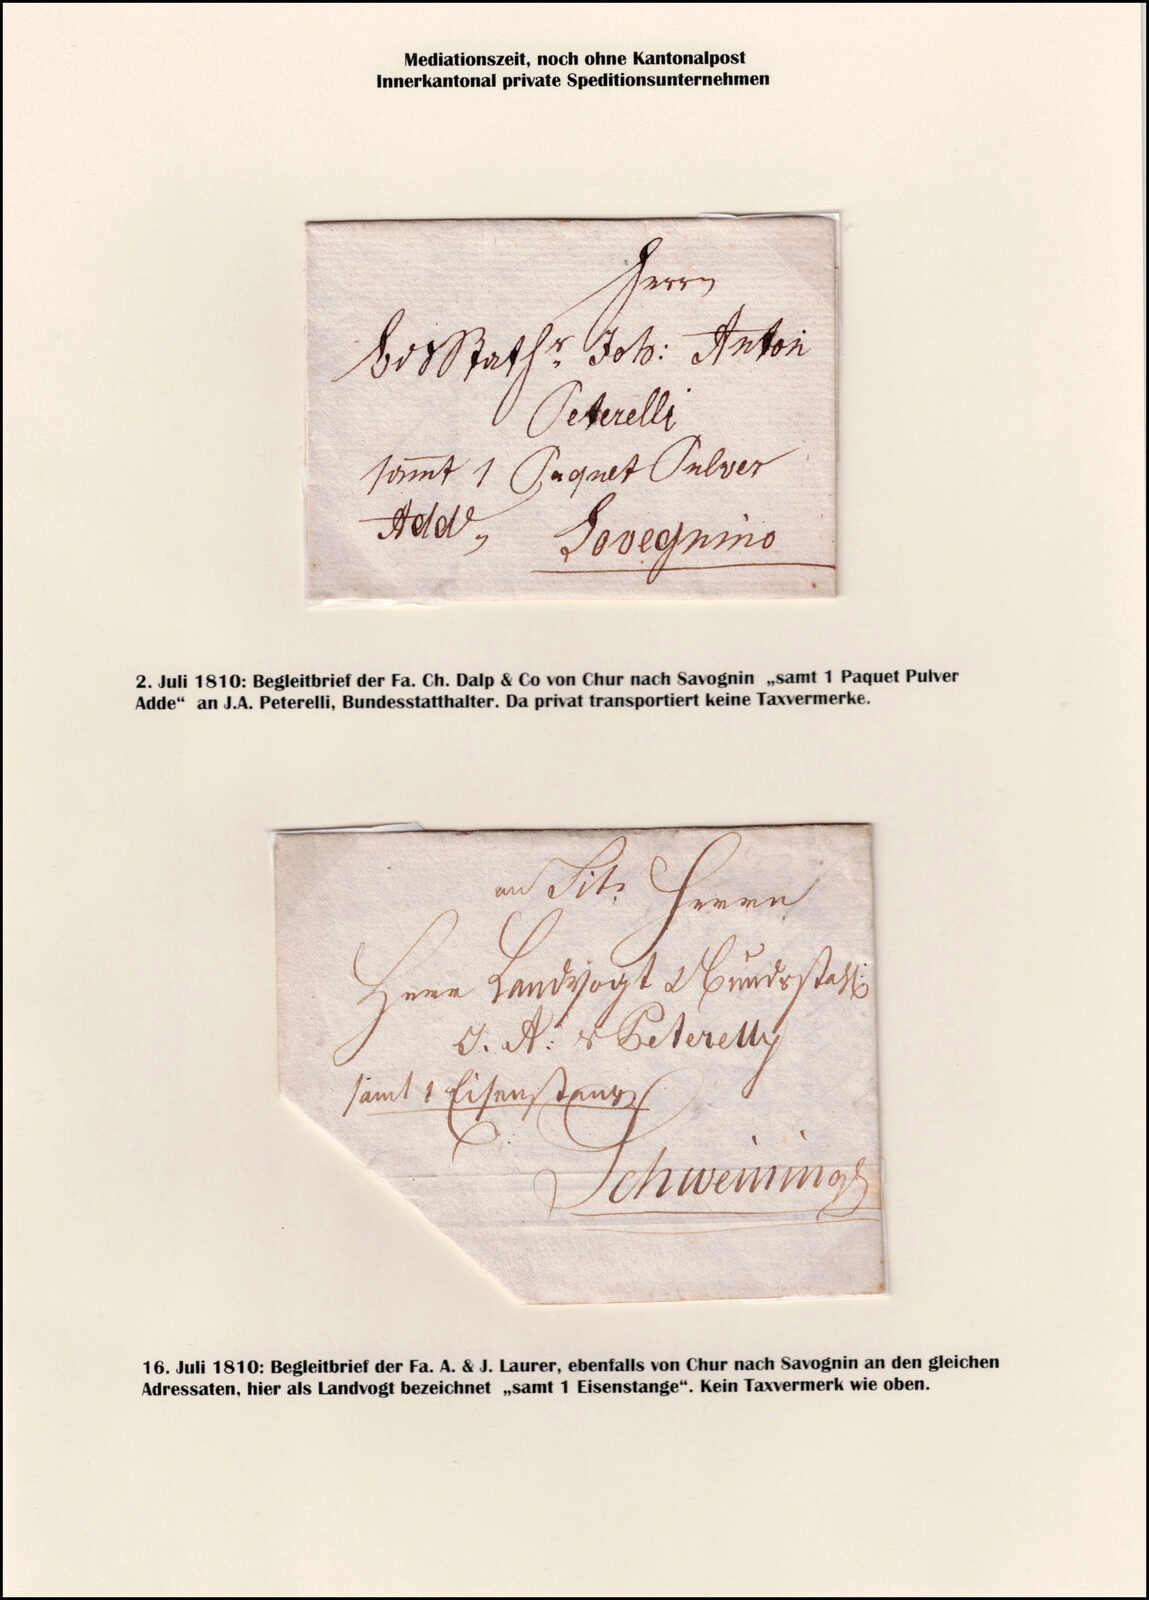 Mediationszeit, noch ohne Kantonalpost
Innerkantonal private Speditionsunternehmen
Herrn
BdsStathr. Joh: Anton
Peterelli
sammt 1 Paquet Pulver
Adde
Sovegnino
2. Juli 1810: Begleitbrief der Fa. Ch. Dalp & Co von Chur nach Savognin „samt 1 Paquet Pulver
Adde“ an J.A. Peterelli, Bundesstatthalter. Da privat transportiert keine Taxvermerke.
an Tit. Herrn
Herr Landvogt Bundsstath:
J. A: v Peterelly
samt 1 Eisenstange
Schweiningen
16. Juli 1810: Begleitbrief der Fa. A. & J. Laurer, ebenfalls von Chur nach Savognin an den gleichen
Adressaten, hier als Landvogt bezeichnet „samt 1 Eisenstange“. Kein Taxvermerk wie oben.